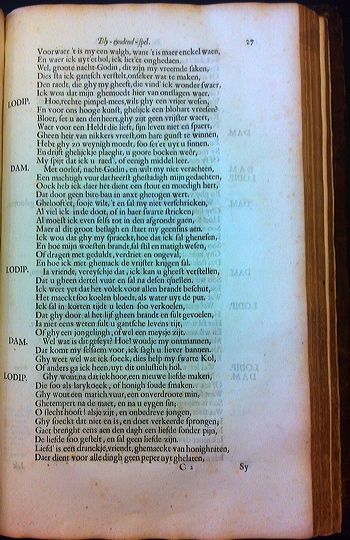 Bly-eyndend-spel. 27
Voorwaer 't is my een walgh, want 't is maer enckel waen,
En waer ick uyt'er hol, ick liet'et onghedaen.
Wel, groote nacht-Godin, dit zijn my vreemde saken,
Dies sta ick gantsch verstelt, onseker wat te maken,
Den raedt, die ghy my gheest, die vind' ick wonder swaer,
Ick wou dat mijn ghemoedt hier van ontslagen waer.
LODIP. Hoe, rechte pimpel-mees, wilt ghy een vrijer wesen,
En voor ons hooge kunst, ghelijck een blohart vreesen?
Bloet, set u aen den heert, ghy zijt geen vrijster waert,
Waer voor een Heldt die leeft, sijn leven niet en spaert,
Gheen heir van nickers vreest, om hare gunst te winnen,
Hebt ghy zo weynigh moedt, soo set'et uyt u sinnen.
En drijft ghelijckje plaeght, u goore bocken weer,
My spijt dat ick u raed', of eenigh middel leer.
DAM. Met oorlof, nacht-Godin, en wilt my niet verachten,
Een machtigh vuur dat heerst ghestadigh mijn gedachten,
Oock heb ick daer het dient een stout en moedigh hert,
Dat door geen bitebau in anxt ghetogen wert.
Ghelooft et, sooje wilt, 't en sal my niet verschricken,
Al viel ick in de doot, of in haer swarte stricken,
Al moest ick even selfs tot in den afgrondt gaen,
Maer al dit groot beslagh en staet my geensins aen.
Ick wou dat ghy my spraeckt, hoe dat ick sal ghenesen,
En hoe mijn woesten brandt, sal stil en matigh wesen,
Of dragen met gedult, verdriet en ongeval,
En hoe ick met ghemack de vrijster krijgen sal.
LODIP. Ja vriende, vereyschje dat, ick kan u gheest verstellen,
Dat u gheen dertel vuur en sal na desen quellen.
Ick weet yet dat het volck voor allen brandt beschut,
Het maeckt soo koelen bloedt, als water uyt de put.
Ick sal in korten tijdt u leden soo verkoelen,
Dat ghy door al het lijf gheen brandt en sult gevoelen,
Ja niet eens weten sult u gantsche levens tijt,
Of ghy een jongelingh, of wel een meysje zijt.
DAM. Wel wat is dit geseyt? Hoe! woudje my ontmannen,
Dat komt my selsaem voor, ick sagh u liever bannen.
Ghy weet wel wat ick soeck, dies help my swarte Kol,
Of anders ga ick heen, uyt dit onlustich hol.
LODIP. Ghy wout nu dat ick hoor, een nieuwe liefde maken,
Die soo als larykoeck, of honigh soude smaken.
Ghy wout een matich vuur, een onverdroote min,
Ghetempert na de maet, en na u eygen sin;
O slecht hooft! alsje zijt, en onbedreve jongen,
Ghy soeckt dat niet en is, en doet verkeerde sprongen;
Gaet brenght eens aen den dagh een liefde sonder pijn,
De liefde soo gestelt, en sal geen liefde zijn.
Liefd' is een dranckje, vriendt, ghemaeckt van honighraten,
Daer dient voor alle dingh geen peper uyt ghelaten,
C 2 Sy